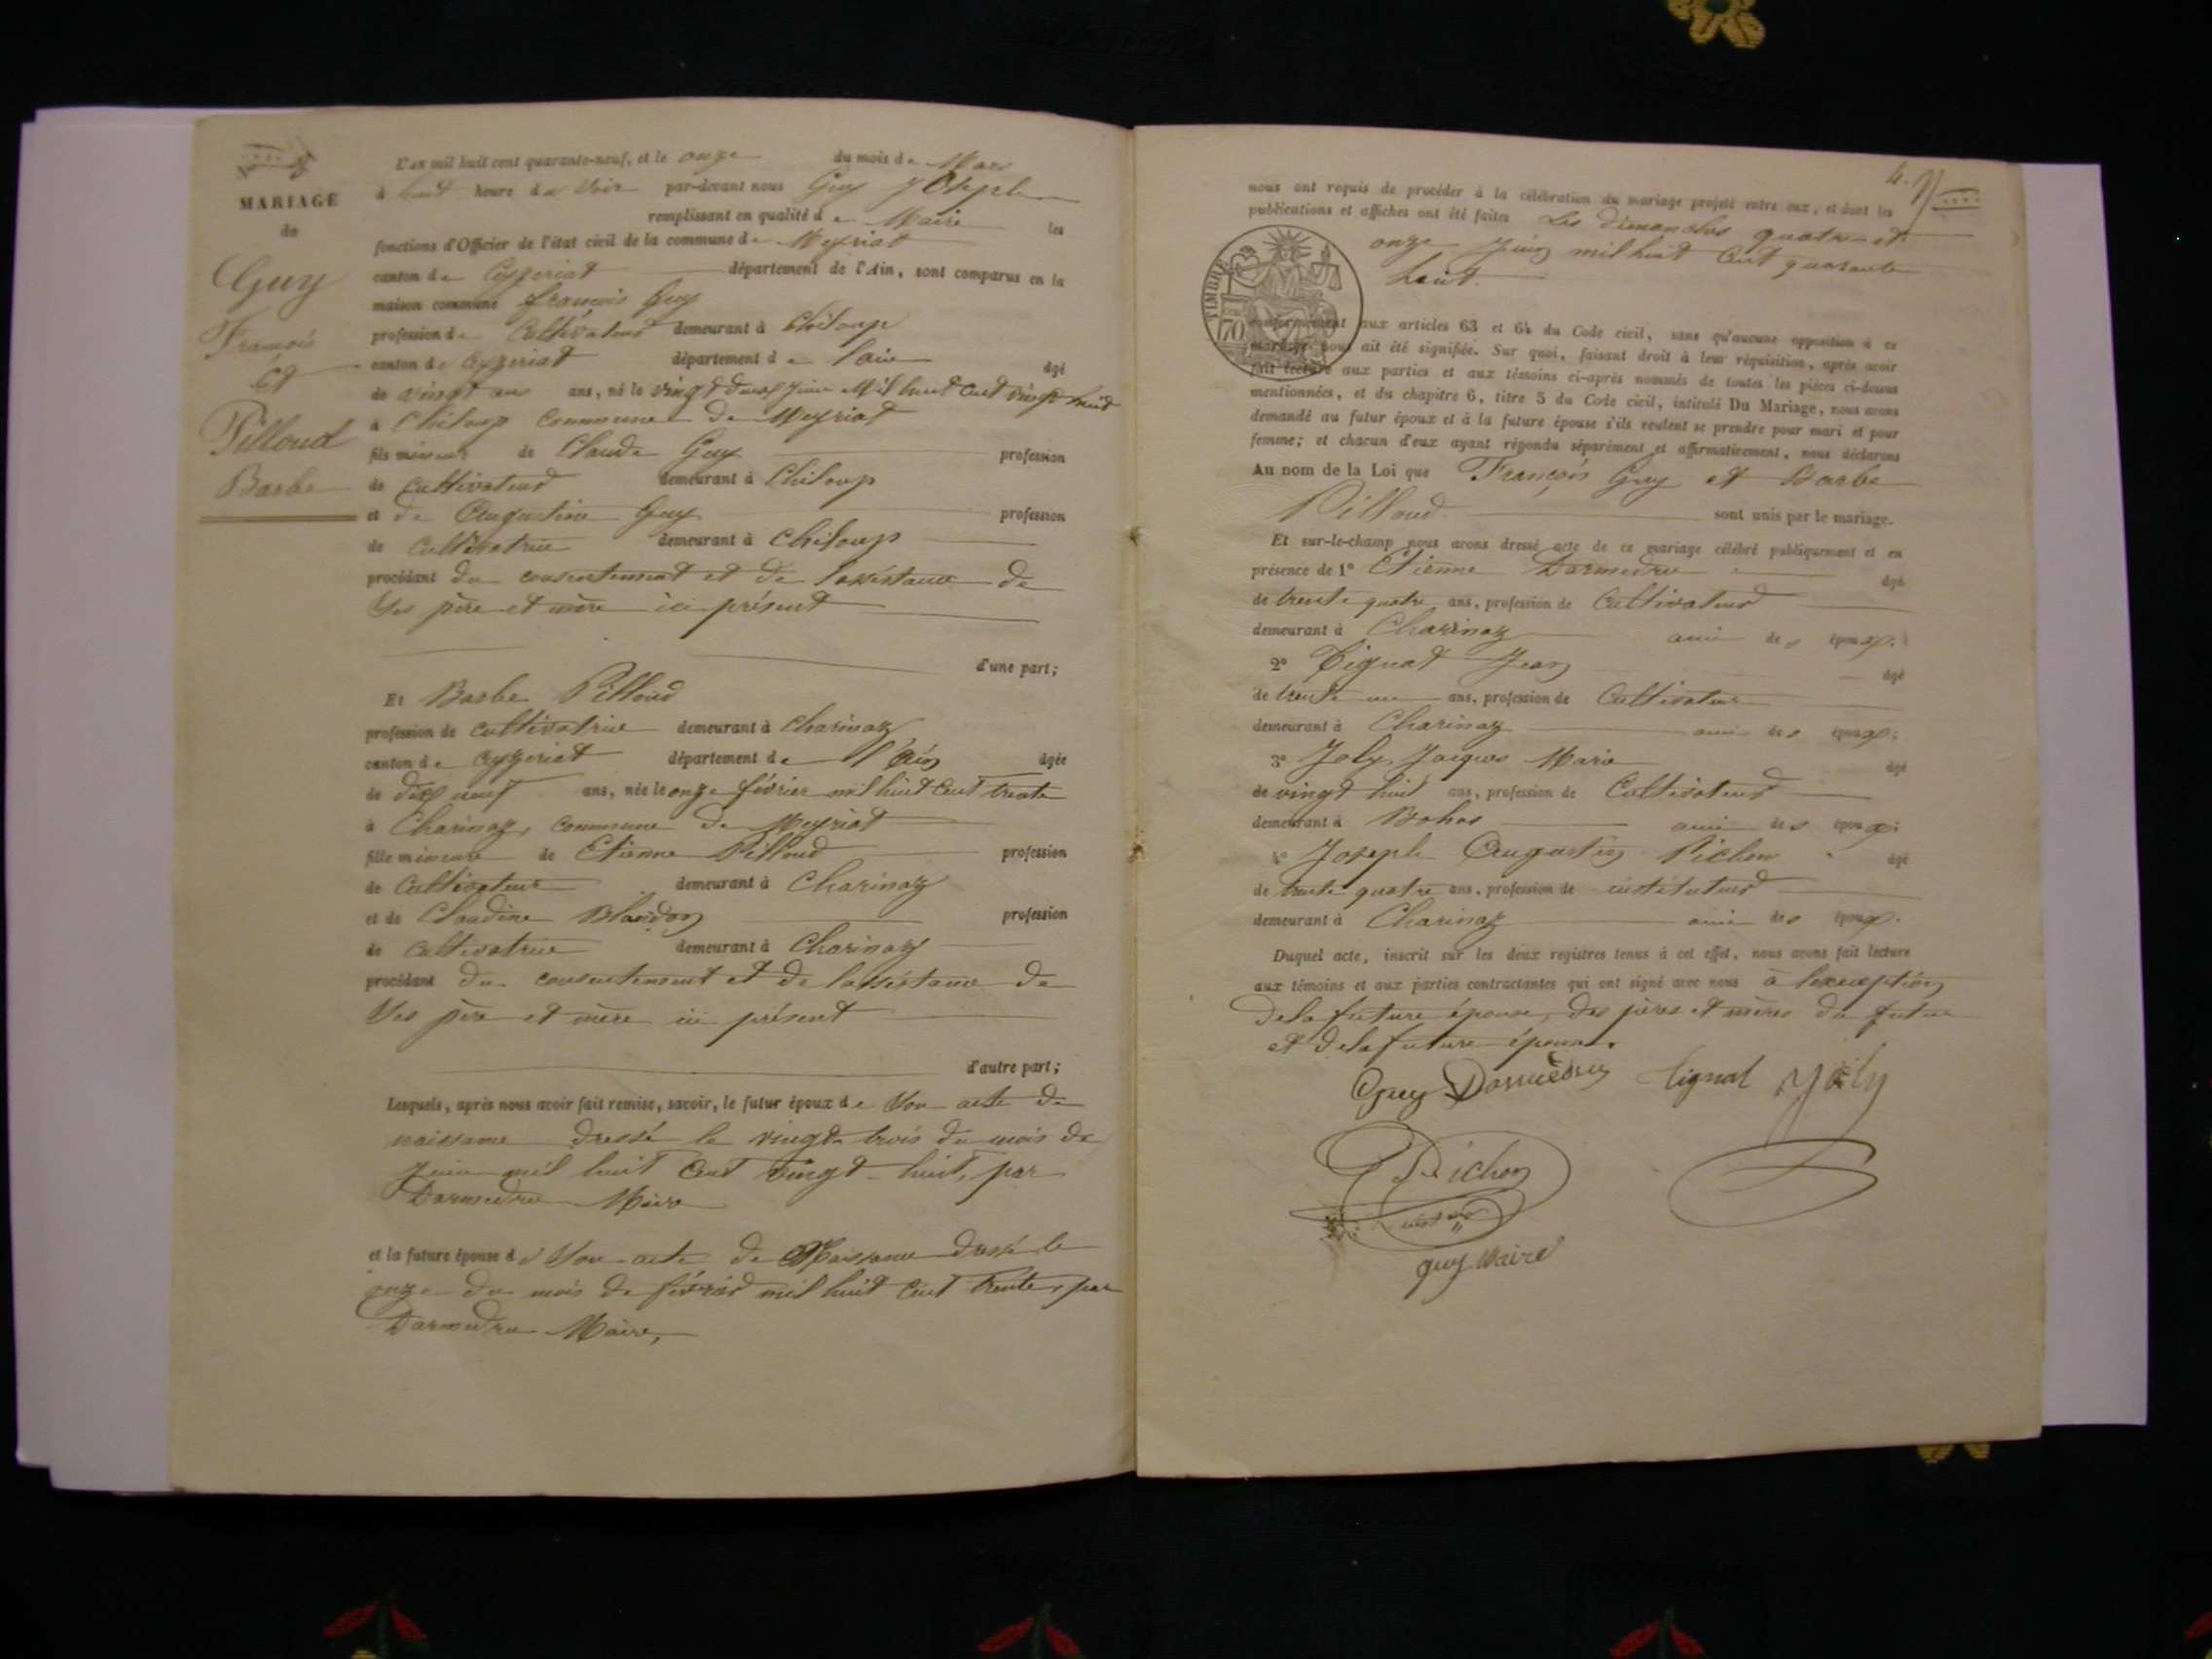 MARIAGE
de
Guy
François
Et
Pilloud
Barbe
L'an mil huit cent quarante-neuf, et le onze du mois de Mars
à huit heure du Soir par-devant nous Guy Joseph
remplissant en qualité de Maire les
fonctions d'Officier de l'état civil de la commune de Meyriat
canton de Ceyzeriat département de l'Ain, sont comparus en la
maison commune François Guy
profession de Cultivateur demeurant à Chiloup
canton de Ceyzeriat département de l'ain âgé
de vingt ans ans, né le vingt deux Juin Mil huit Cent vingt huit
à Chiloup Commune de Meyriat
fils mineur de Claude Guy profession
de Cultivateur demeurant à Chiloup
et de Augustine Guy profession
de Cultivatrice demeurant à Chiloup
procédant du consentement et de l'assistance de
Ses père et mère ici présent
d'une part;
Et Barbe Pilloud
profession de cultivatrice demeurant à Charinaz
canton de Ceyzeriat département de l'Ain âgée
de dix neuf ans, née le onze février mil huit Cent trente
à Charinaz, Commune de Meyriat
fille mineure de Etienne Pilloud profession
de Cultivateur demeurant à Charinaz
et de Claudine Blandon profession
de Cultivatrice demeurant à Charinaz
procédant du consentement et de l'assistance de
Ses père et mère ici présent
d'autre part;
Lesquels, après nous avoir fait remise, savoir, le futur époux de Son acte de
naissance dressé le vingt-trois du mois de
Juin mil huit Cent vingt-huit, par
Darmedru Maire
et la future épouse de Son acte de Naissance dressé le
onze du mois de février mil huit Cent trente, par
Darmedru Maire,
4.
nous ont requis de procéder à la célébration du mariage projeté entre eux, et dont les
publications et affiches ont été faites Les dimanches quatre et
onze Juin mil huit Cent quarante
huit.
TIMBRE
70
conformément aux articles 63 et 64 du Code civil, sans qu'aucune opposition à ce
mariage nous ait été signifiée. Sur quoi, faisant droit à leur réquisition, après avoir
fait lecture aux parties et aux témoins ci-après nommés de toutes les pièces ci-dessus
mentionnées, et du chapitre 6, titre 5 du Code civil, intitulé Du Mariage, nous avons
demandé au futur époux et à la future épouse s'ils veulent se prendre pour mari et pour
femme; et chacun d'eux ayant répondu séparément et affirmativement, nous déclarons
Au nom de la Loi que François Guy et Barbe
Pilloud sont unis par le mariage.
Et sur-le-champ nous avons dressé acte de ce mariage célébré publiquement et en
présence de 1° Etienne Darmedru âgé
de trente quatre ans, profession de Cultivateur
demeurant à Charinaz ami des époux.
2° Tignat Jean âgé
de trente un ans, profession de Cultivateur
demeurant à Charinaz ami des époux;
3° Joly Jacques Marie âgé
de vingt huit ans, profession de Cultivateur
demeurant à Bohas ami des époux;
4° Joseph Augustin Pichon âgé
de trente quatre ans, profession de instituteur
demeurant à Charinaz ami des époux.
Duquel acte, inscrit sur les deux registres tenus à cet effet, nous avons fait lecture
aux témoins et aux parties contractantes qui ont signé avec nous à l'exception
de la future épouse, des pères et mères du futur
et de la future épouse.
Guy Darmedru tignat Joly
Pichon
guy Maire